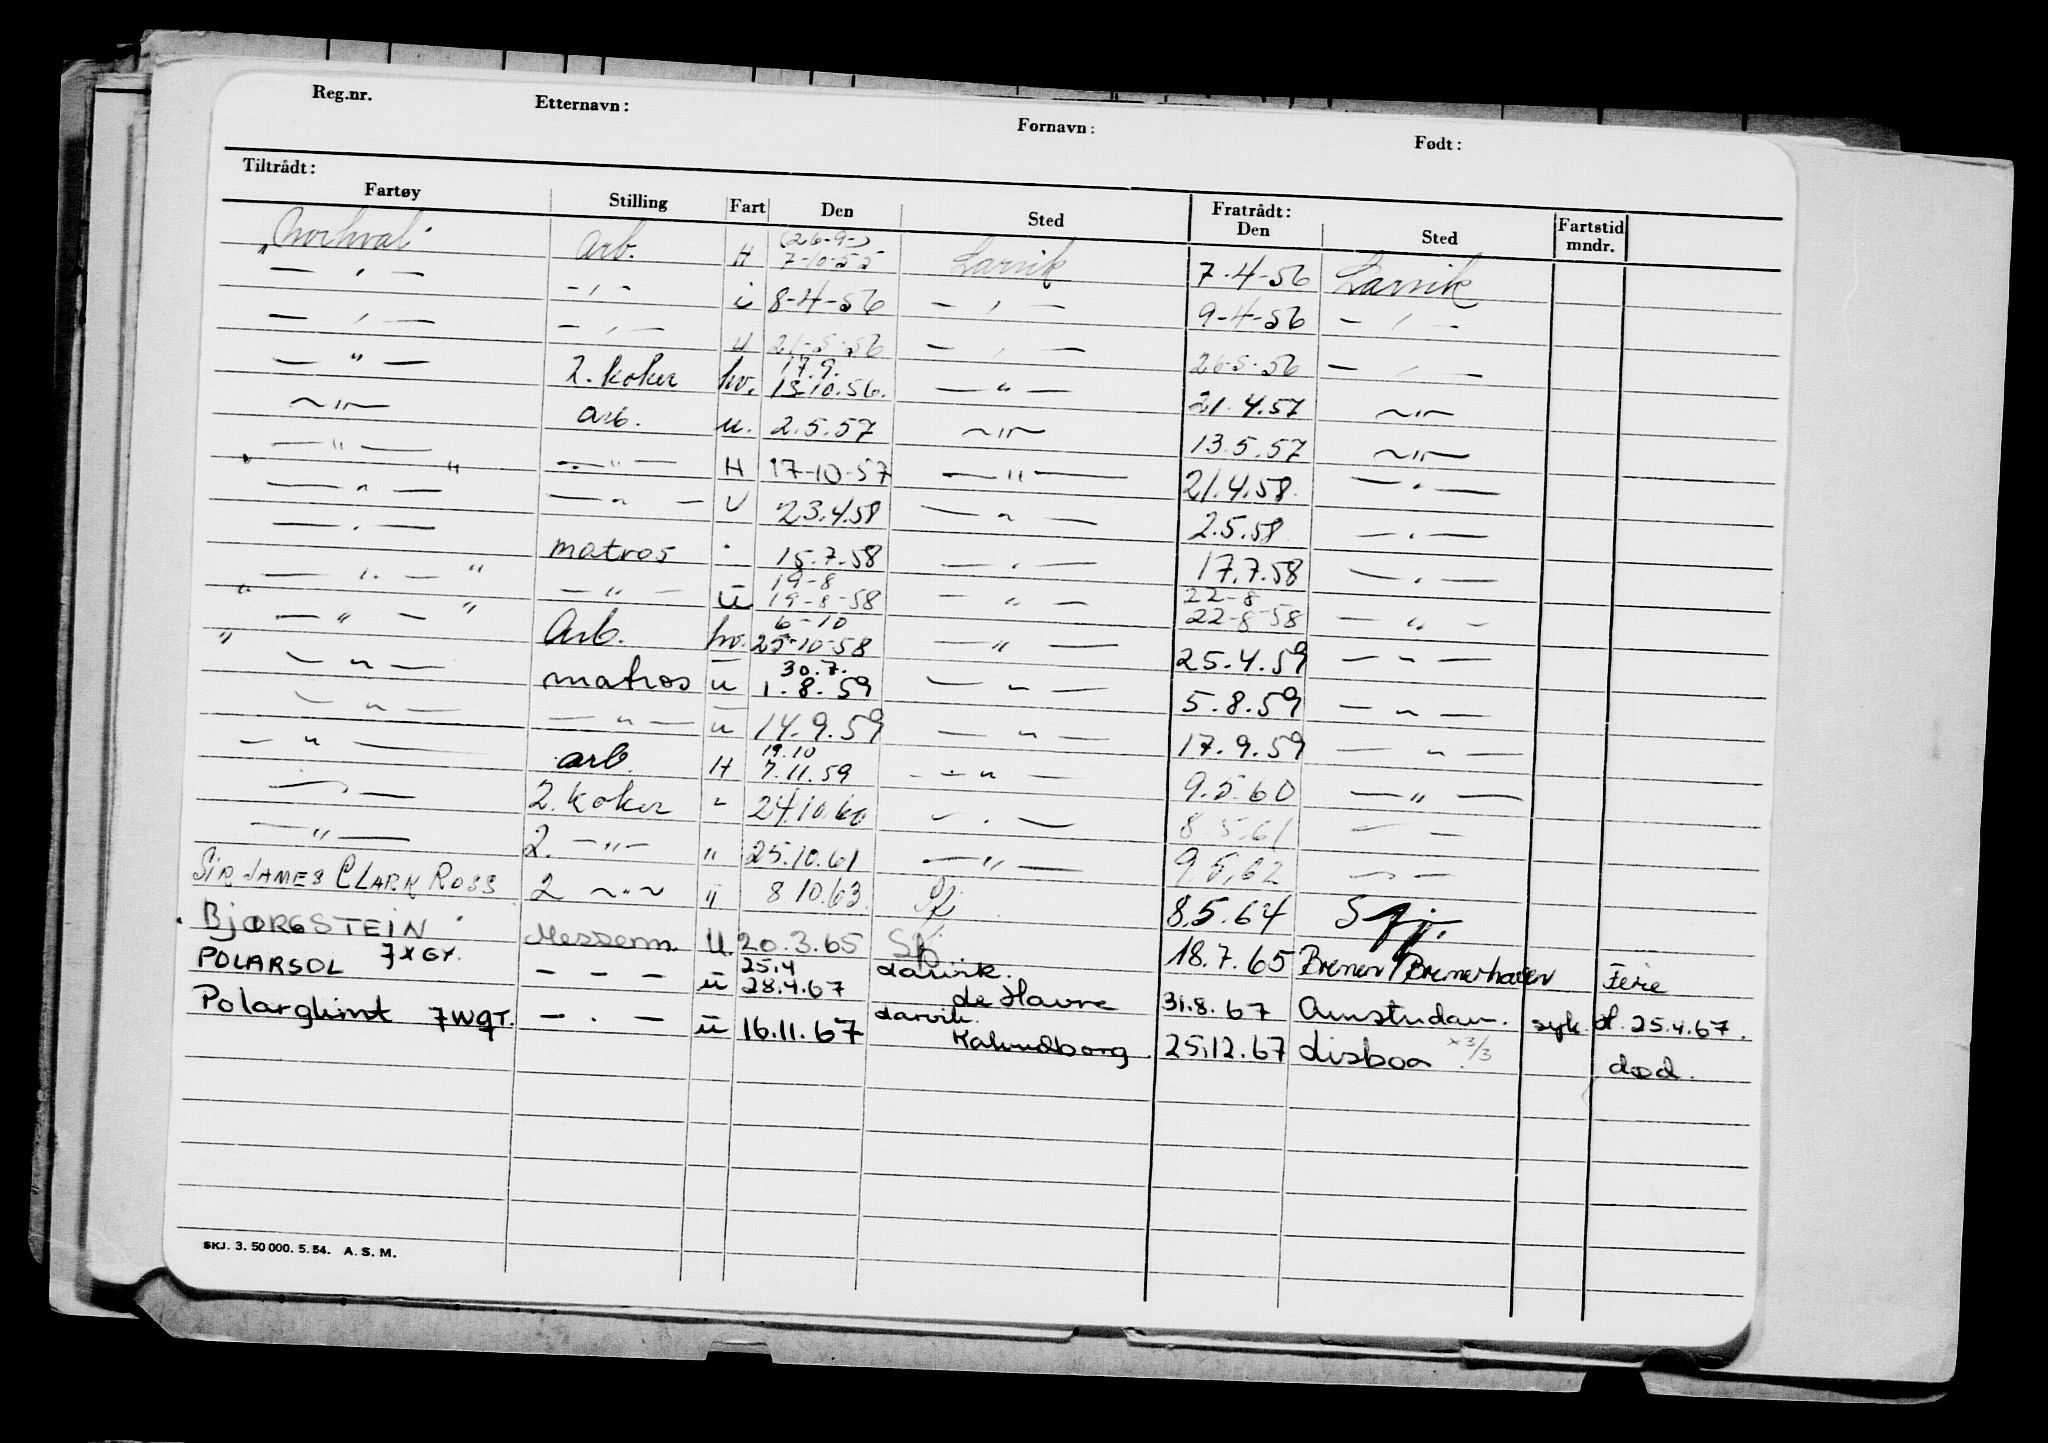 Reg.nr. Etternavn: Fornavn: Født:
Tiltrådt: Fratrådt:
Fartøy Stilling Fart Den Sted Den Sted Fartstid mndr.
"Norhval" arb. H (26-9-) 7-10-55 Larvik 7-4-56 Larvik
— , — - , - i 8-4-56 — , — 9-4-56 — , —
— , — — , — U 21-5-56 — , — 26-5-56 — , —
— " — 2. koker hv. 17.9. 13.10.56. — " — 21.4.57 ~"~
~"~ arb. u. 2.5.57 ~"~ 13.5.57 ~"~
— " — — " — H 17-10-57 — " — 21.4.58. — " —
" — " — " — " — U 23.4.58 — " — 2.5.58 — . —
— . — matros . 15.7.58 — . — 17.7.58 — . —
— " — " — " — u 19-8 19-8-58 — " — 22-8 22-8-58 — " —
" — " — " Arb. hv. 6-10 25-10-58 — " — 25.4.59 — " —
" — " — matros u 30.7. 1.8.59 — " — 5.8.59 — " —
— " — — " — u 14.9.59 — " — 17.9.59 — " —
— " — arb. H 19.10 7.11.59 — " — 9.5.60 — " —
— — 2. koker " 24.10.60 — . — 8.5.61 — —
— " — 2. — " — " 25.10.61 — " — 9.5.62 — —
SIR JAMES CLARK ROSS 2 ~"~ " 8.10.63. Sfj. 8.5.64 Sfj.
"BJØRGSTEIN" Messem. U. 20.3.65 Sfj. 18.7.65 Bremen/Bremerhaven Ferie
POLARSOL 7XGY. — — — u 25.4 28.4.67 Larvik. Le Havre 31.8.67 Amsterdam. syk. bl. 25.4.67.
Polarglimt 7WQT. — . — u 16.11.67 Larvik. Kalundborg. 25.12.67 Lisboa x 3/3 død.
SKJ. 3. 50 000. 5. 54. A. S. M.